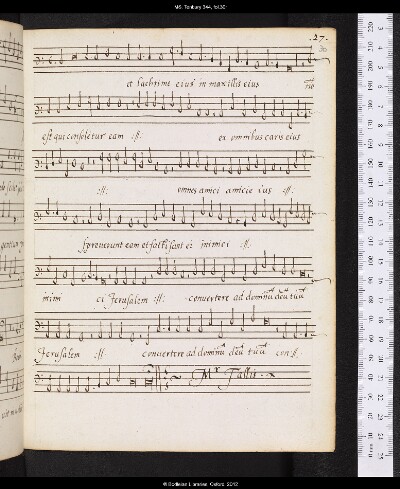 MS. Tenbury 344, fol.30r
.27.
30
et lachrimæ eius in maxillis eius non
est qui consoletur eam :||: ex omnibus caris eius
:||: omnes amici amiciæ :||:
spreuerunt eam et facti sunt ei inimici :||:
inimi ci Jerusalem :||: conuertere ad dominū deū tuū
Jerusalem :||: conuertere ad dominū deū tuū con :||:
Mr Tallis
© Bodleian Libraries, Oxford, 2012